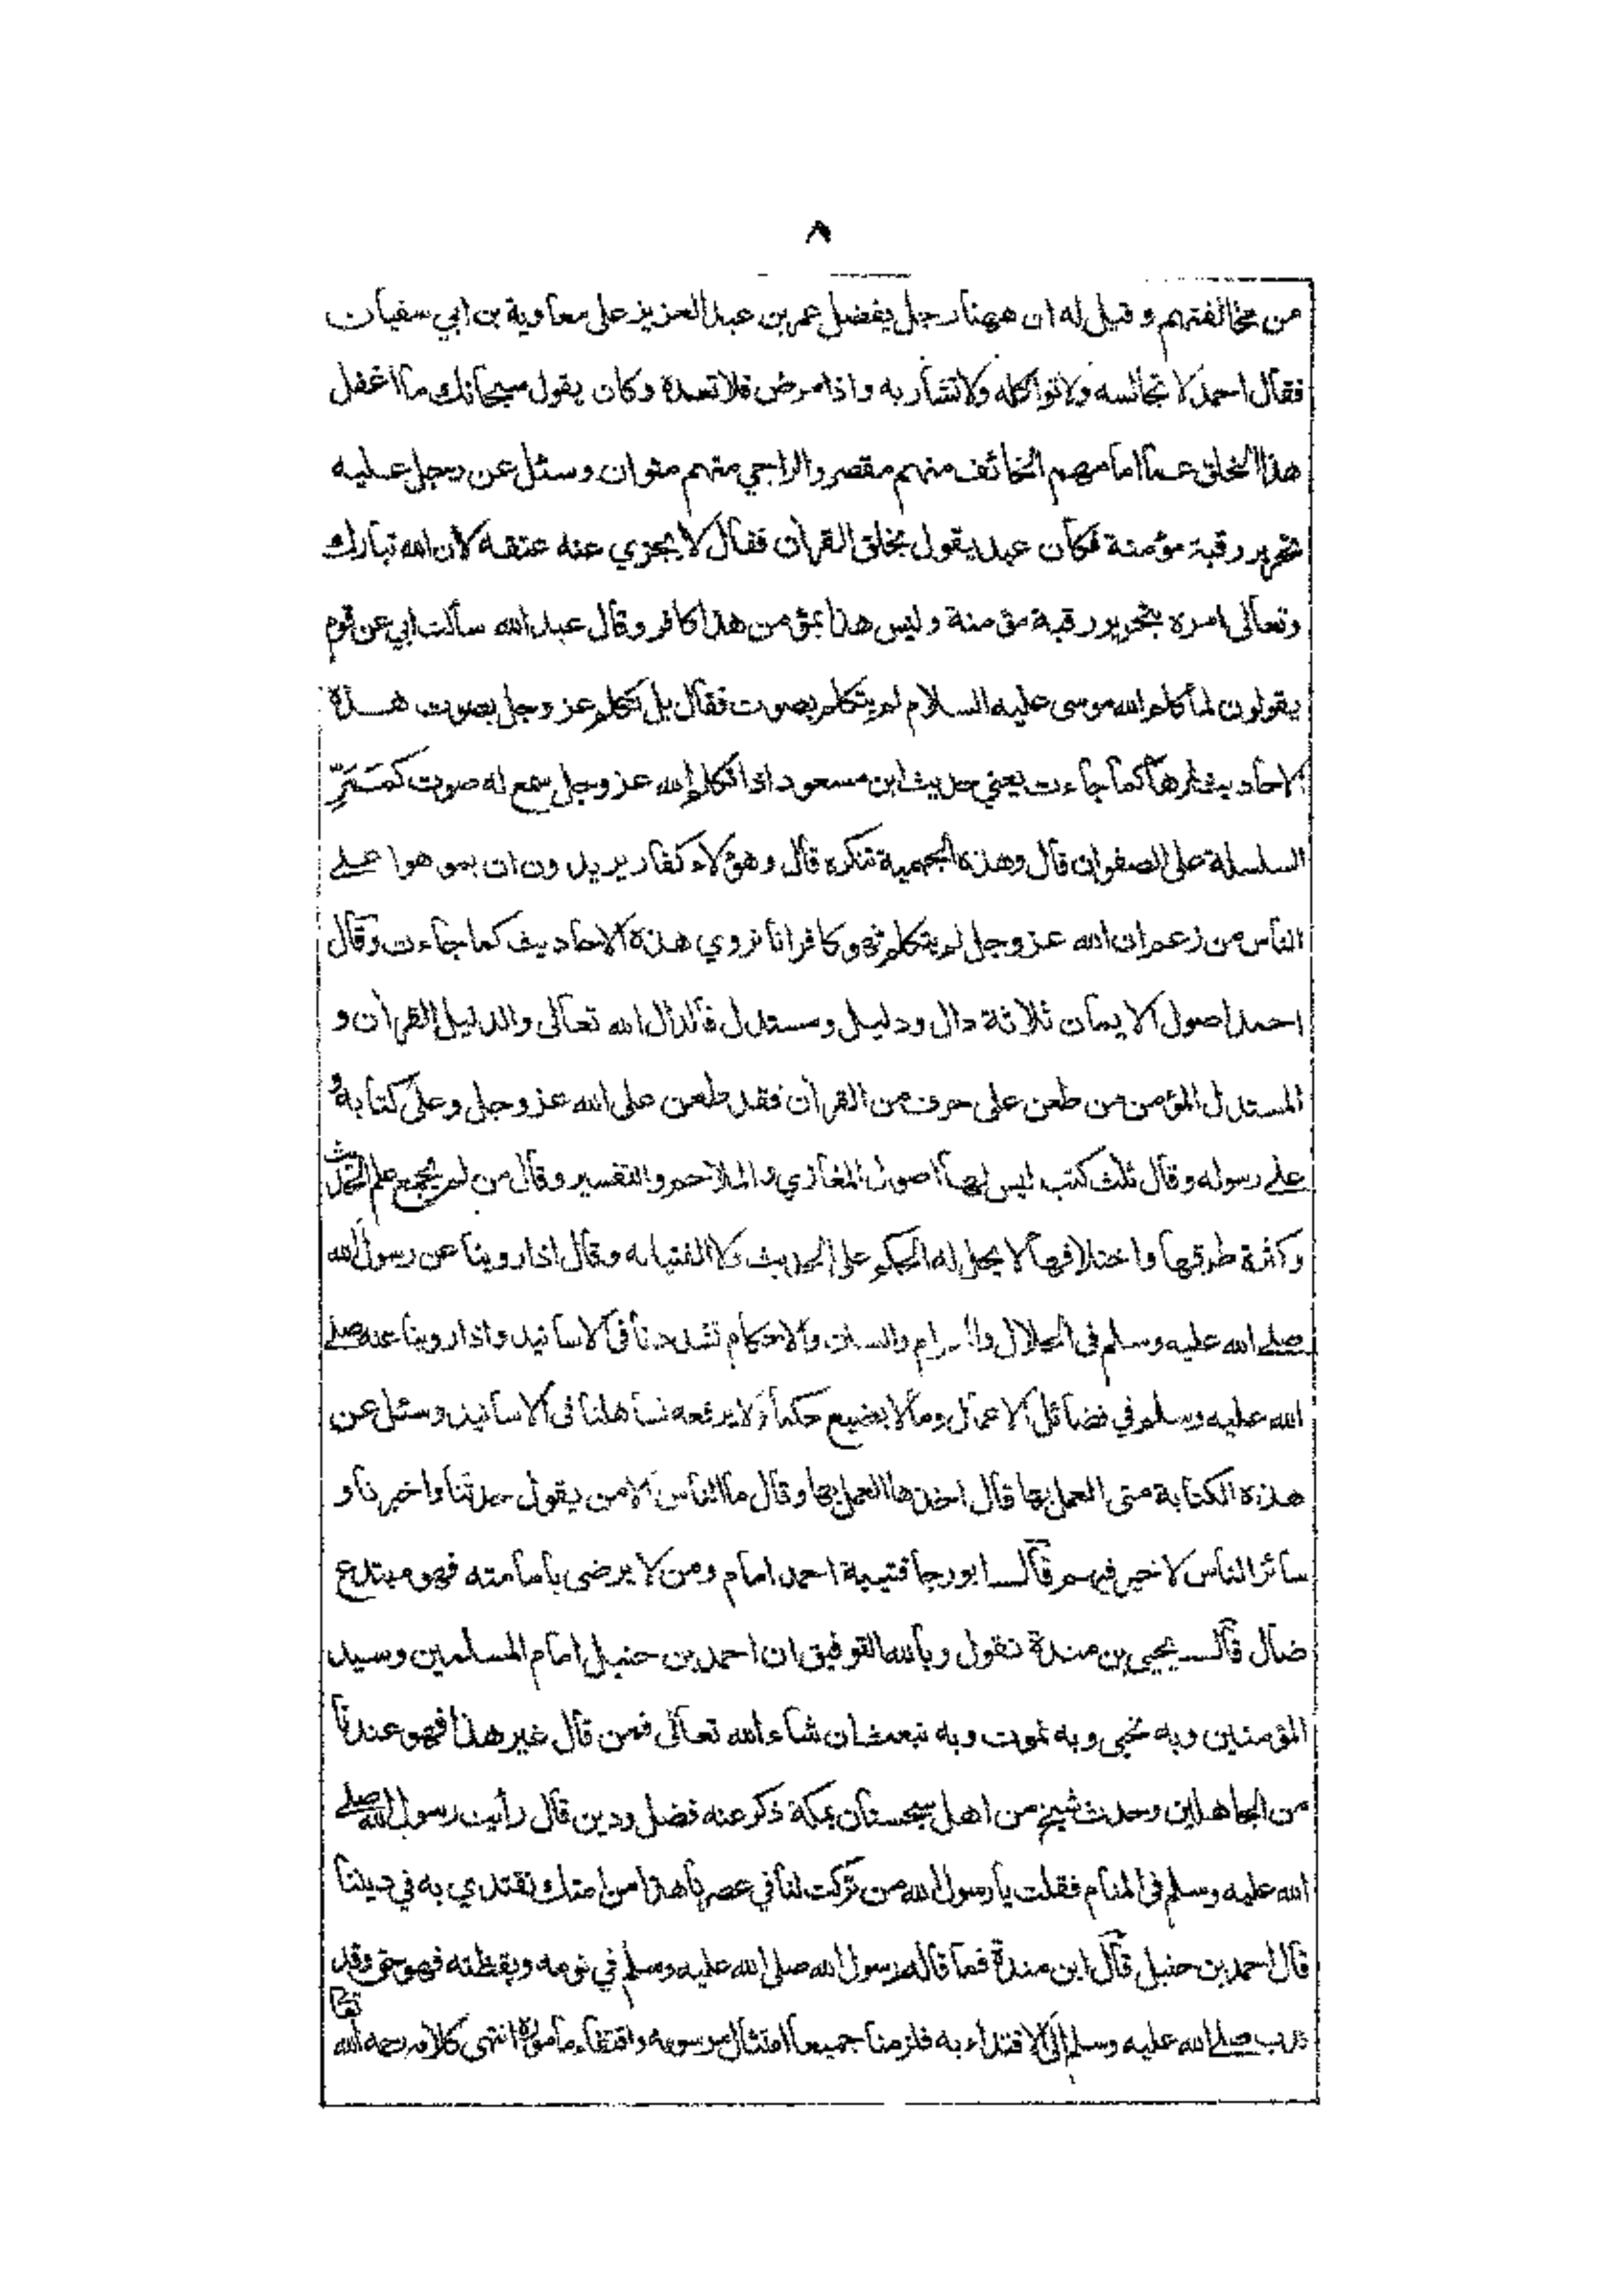 ٨
من مخالفتهم و قيل له ان ههنا رجل يفضل عمر بن عبد العزيز على معاوية بن ابي سفيان
فقال احمد لا تجالسه ولا تواكله ولا تشاربه واذا مرض فلا تعده وكان يقول سبحانك ما اغفل
هذا الخلق عما امامهم الخائف منهم مقصر والراجي منهم متوان وسئل عن رجل عليه
تحرير رقبة مؤمنة فكان عبد يقول بخلق القرآن فقال لا يجزي عنه عتقه لان الله تبارك
وتعالى امره بتحرير رقبة مؤمنة وليس هذا بمؤمن هذا كافر وقال عبد الله سألت ابي عن قوم
يقولون لما كلم الله موسى عليه السلام لم يتكلم بصوت فقال بل تكلم عز وجل بصوت هذه
الاحاديث نمرها كما جاءت يعني حديث ابن مسعود اذا تكلم الله عز وجل سمع له صوت كمَرِّ
السلسلة على الصفوان قال وهذه الجهمية تنكره قال وهؤلاء كفار يريدون ان يموهوا على
الناس من زعم ان الله عز وجل لم يتكلم فهو كافر انا نروي هذه الاحاديث كما جاءت وقال
احمد اصول الايمان ثلاثة دال ودليل ومستدل فالدال الله تعالى والدليل القرآن و
المستدل المؤمن من طعن على حرف من القرآن فقد طعن على الله عز وجل وعلى كتابه و
على رسوله وقال ثلث كتب ليس لها اصول المغازي والملاحم والتفسير وقال من لم يجمع علم الحديث
وكثرة طرقها واختلافها لا يحل له الحكم على الحديث ولا الفتيا به وقال اذا روينا عن رسول الله
صلى الله عليه وسلم في الحلال والحرام والسنن والاحكام تشددنا في الاسانيد واذا روينا عنه صلى
الله عليه وسلم في فضائل الاعمال وما لا يضيع حكما ولا يرفعه تساهلنا في الاسانيد وسئل عن
هذه الكتابة متى العمل بها قال اخذها العمل بها وقال ما الناس الا من يقول حدثنا واخبرنا و
سائر الناس لا خير فيهم قال ابو رجا قتيبة احمد امام ومن لا يرضى بامامته فهو مبتدع
ضال قال يحيى بن مندة نقول وبالله التوفيق ان احمد بن حنبل امام المسلمين وسيد
المؤمنين وبه نحيى وبه نموت وبه نبعث ان شاء الله تعالى فمن قال غير هذا فهو عندنا
من الجاهلين وحدث شيخ من اهل سجستان بمكة ذكر عنه فضل ودين قال رأيت رسول الله صلى
الله عليه وسلم في المنام فقلت يا رسول الله من تركت لنا في عصرنا هذا من امتك نقتدي به في ديننا
قال احمد بن حنبل قال ابن مندة فما قاله رسول الله صلى الله عليه وسلم في نومه ويقظته فهو حق وقد
ندب صلى الله عليه وسلم الى الاقتداء به فلزمنا جميعا امتثال مرسومه واقتفاء مأموره انتهى كلامه رحمه الله تعالى